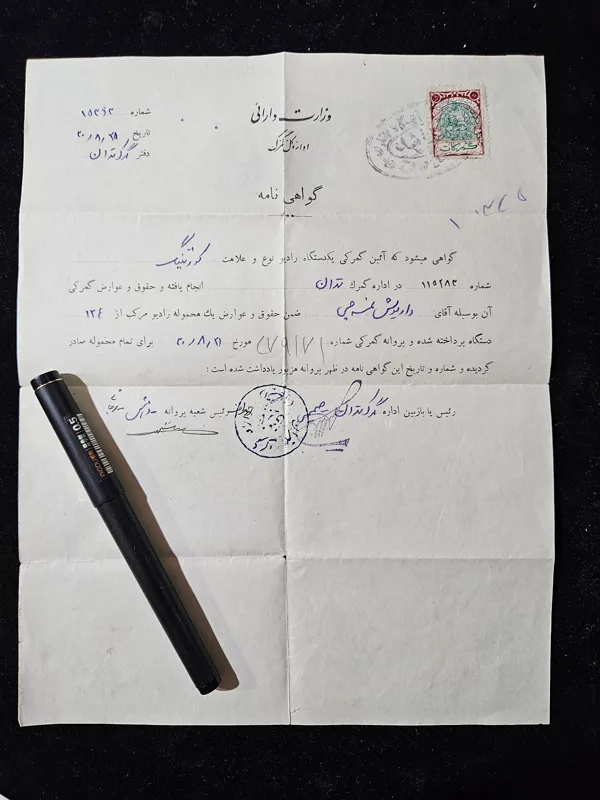 وزارت دارائی
اداره کل گمرک
شماره ۱۵۳۶۳
تاریخ ۲۰/۸/۲۵
دفتر گمرک تهران
گواهی نامه
گواهی میشود که آئین گمرکی یکدستگاه رادیو نوع و علامت کورتینگ
شماره ۱۱۵۲۸۳ در اداره گمرک تهران انجام یافته و حقوق و عوارض گمرکی
آن بوسیله آقای داریوش ضمن حقوق و عوارض یک محموله رادیو مرکب از ۱۲۴
دستگاه پرداخته شده و پروانه گمرکی شماره مورخ ۲۰/۸/۲۱ برای تمام محموله صادر
گردیده و شماره و تاریخ این گواهی نامه در ظهر پروانه مزبور یادداشت شده است :
رئیس یا بازبین اداره گمرک تهران رئیس شعبه پروانه
0.5